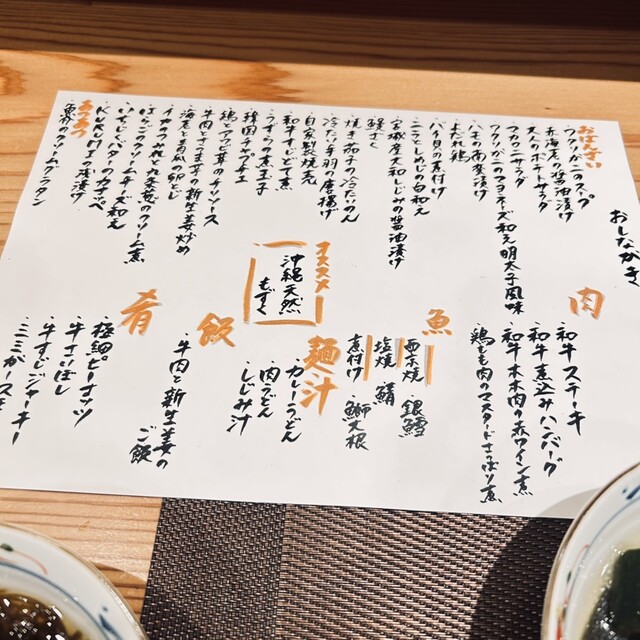 おしながき
おばんざい
・ワタリガニのスップ
・赤海老の醤油漬け
・大人のポテトサラダ
・タカカニサラダ
・ワタリガニのマヨネーズ和え 明太子風味
・ハモの南蛮漬け
・よだれ鶏
・バイ貝の煮付け
・ニラとしめじの白和え
・宮城産大和しじみの醤油漬け
・鰻ざく
・焼き茄子の冷たいあん
・冷たい手羽の唐揚げ
・自家製焼売
・和牛すじどて煮
・うずらの煮玉子
・韓国チャプチェ
・鶏とアワビ茸のチリソース
・牛肉とさつま芋の新生姜炒め
・海老と青瓜の卵とじ
・イワシのつみれと九条葱のクリーム煮
・ほうれん草のクリームチーズ和え
・いちじくバターのカナッペ
あつあつ
・魚介のクリームグラタン
肉
・和牛ステーキ
・和牛煮込みハンバーグ
・和牛木木肉の赤ワイン煮
・鶏もも肉のマスタードさっぱり煮
魚
西京焼 銀鱈
塩焼 鯖
煮付け 鰤大根
オススメ
沖縄天然
もずく
麺・汁
・カレーうどん
・肉うどん
・しじみ汁
飯
・牛肉と新生姜の
ご飯
肴
・極細ピーナッツ
・牛すじジャーキー